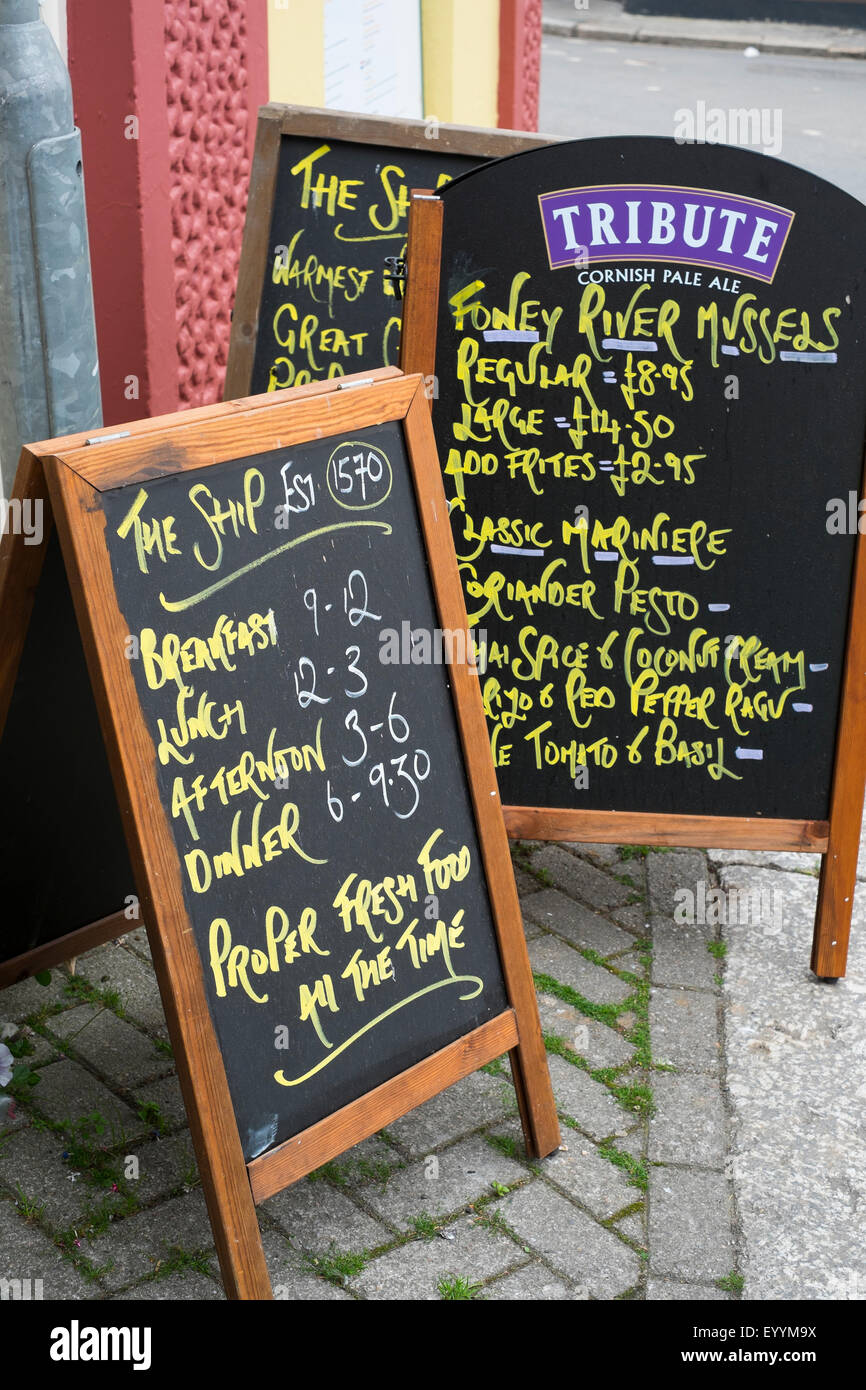 The Ship Est 1570
Breakfast 9-12
Lunch 12-3
Afternoon 3-6
Dinner 6-9.30
Proper Fresh Food
All The Time
The
Warmest
Great
TRIBUTE
CORNISH PALE ALE
Foney River Mussels
Regular = £8.95
Large = £14.50
Add Frites = £2.95
Classic Mariniere
Coriander Pesto -
Spice & Coconut Cream -
& Red Pepper Ragu -
Tomato & Basil -
alamy
a
Image ID: EYYM9X
www.alamy.com